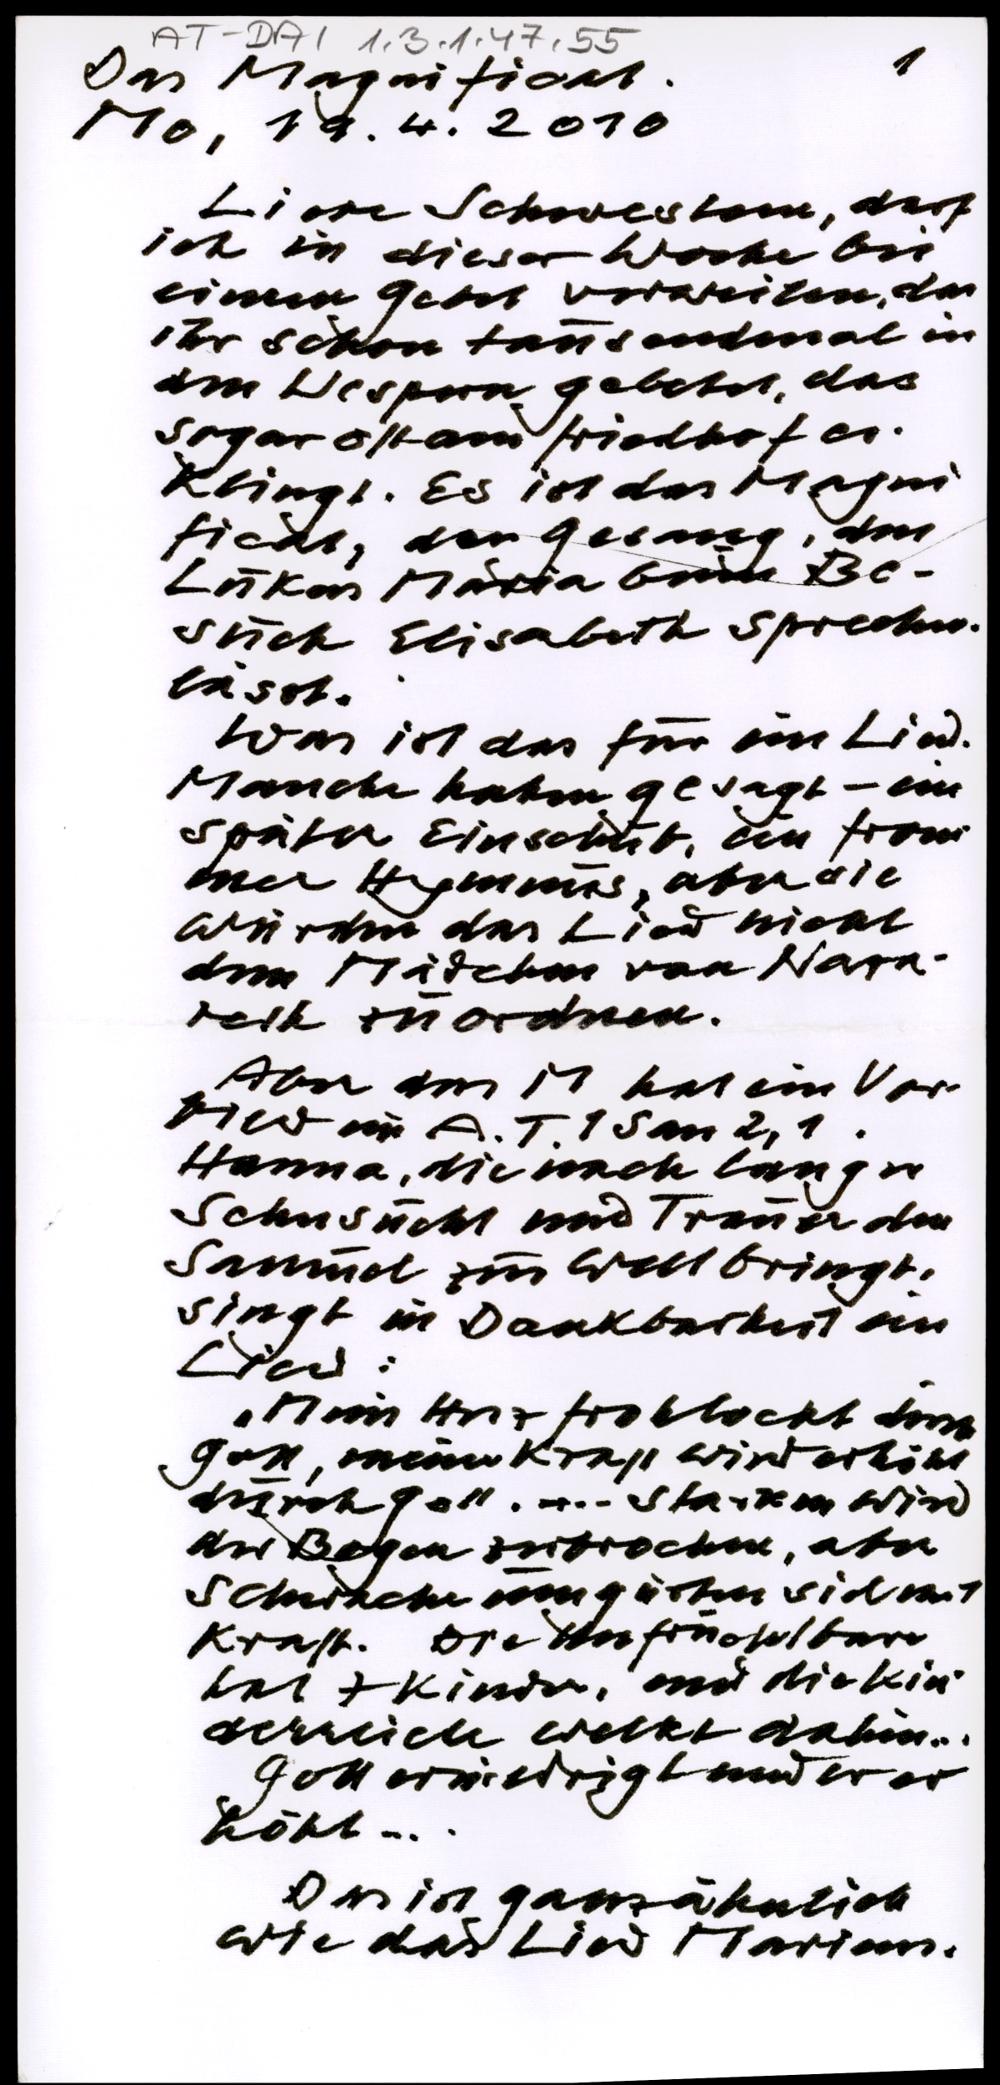 AT-DAI 1.3.1.47.55
Das Magnificat. 1
Mo, 19.4.2010
Liebe Schwestern, darf
ich in dieser Woche bei
einem Gebet verweilen, das
ihr schon tausendmal in
den Vespern gebetet, das
sogar oft am Friedhof er-
klingt. Es ist das Magni
ficat, der Gesang, den
Lukas Maria beim Be-
such Elisabeth sprechen
lässt.
Was ist das für ein Lied.
Manche haben gesagt – ein
später Einschub, ein from
mer Hymnus, aber sie
würden das Lied nicht
dem Mädchen von Naza-
reth zuordnen.
Aber das M hat ein Vor-
bild im A.T. 1 Sam 2,1.
Hanna, die nach langer
Sehnsucht und Trauer den
Samuel zur Welt bringt,
singt in Dankbarkeit ein
Lied:
„Mein Herz frohlockt durch
Gott, meine Kraft wird erhöht
durch Gott. .... Starken wird
der Bogen zerbrochen, aber
Schwache umgürten sich mit
Kraft. Die Unfruchtbare
hat 7 Kinder, und die kin
derreiche welkt dahin...
Gott erniedrigt und er er
höht ...
Das ist ganz ähnlich
wie das Lied Mariens.